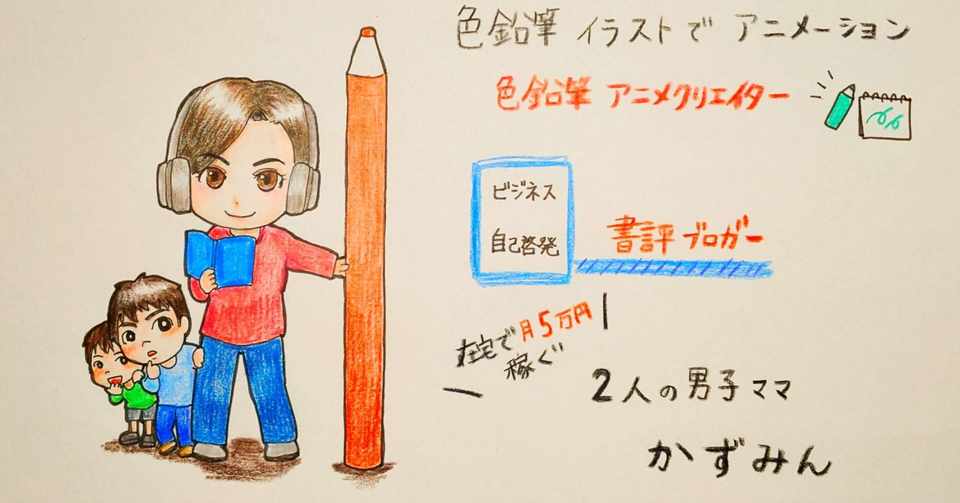 色鉛筆 イラストで アニメーション
色鉛筆 アニメクリエイター
ビジネス
自己啓発
書評ブロガー
在宅で月5万円
稼ぐ
2人の男子ママ
かずみん